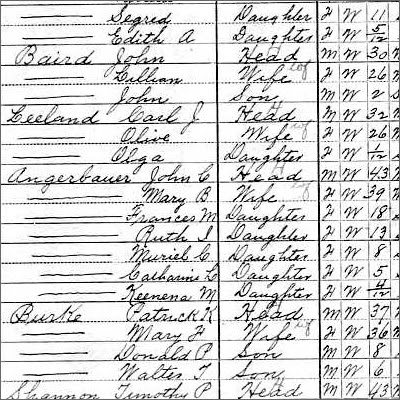 —— Segrid Daughter F W 11
—— Edith A Daughter F W 5/12
Baird John Head M W 30
—— Lillian Wife F W 26
—— John Son M W 2
Leeland Carl J Head M W 32
—— Olive Wife F W 26
—— Olga Daughter F W 1/12
Angerbauer John C Head M W 43
—— Mary B Wife F W 39
—— Frances M Daughter F W 18
—— Ruth I Daughter F W 13
—— Muriel C Daughter F W 8
—— Catharine L Daughter F W 5
—— Keenena M Daughter F W 4/12
Burke Patrick K Head M W 37
—— Mary F Wife F W 36
—— Donald P Son M W 8
—— Walter T Son M W 6
Shannon Timothy P Head M W 43